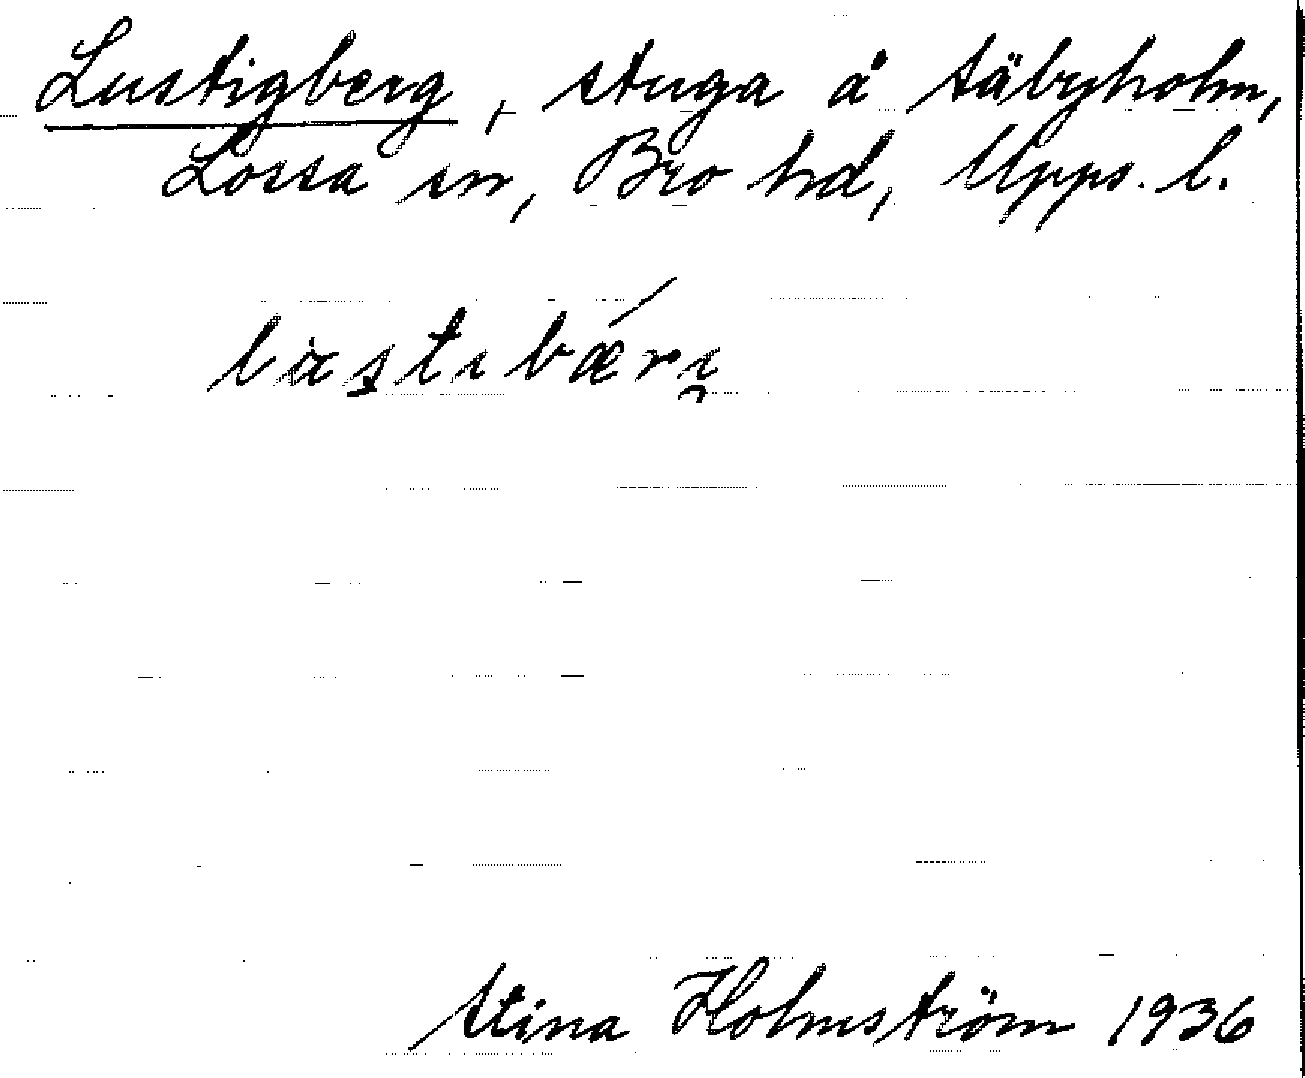 Lustigberg, stuga å Säbyholm,
Lossa sn, Bro hd, Upps. l.
Stina Holmström 1936